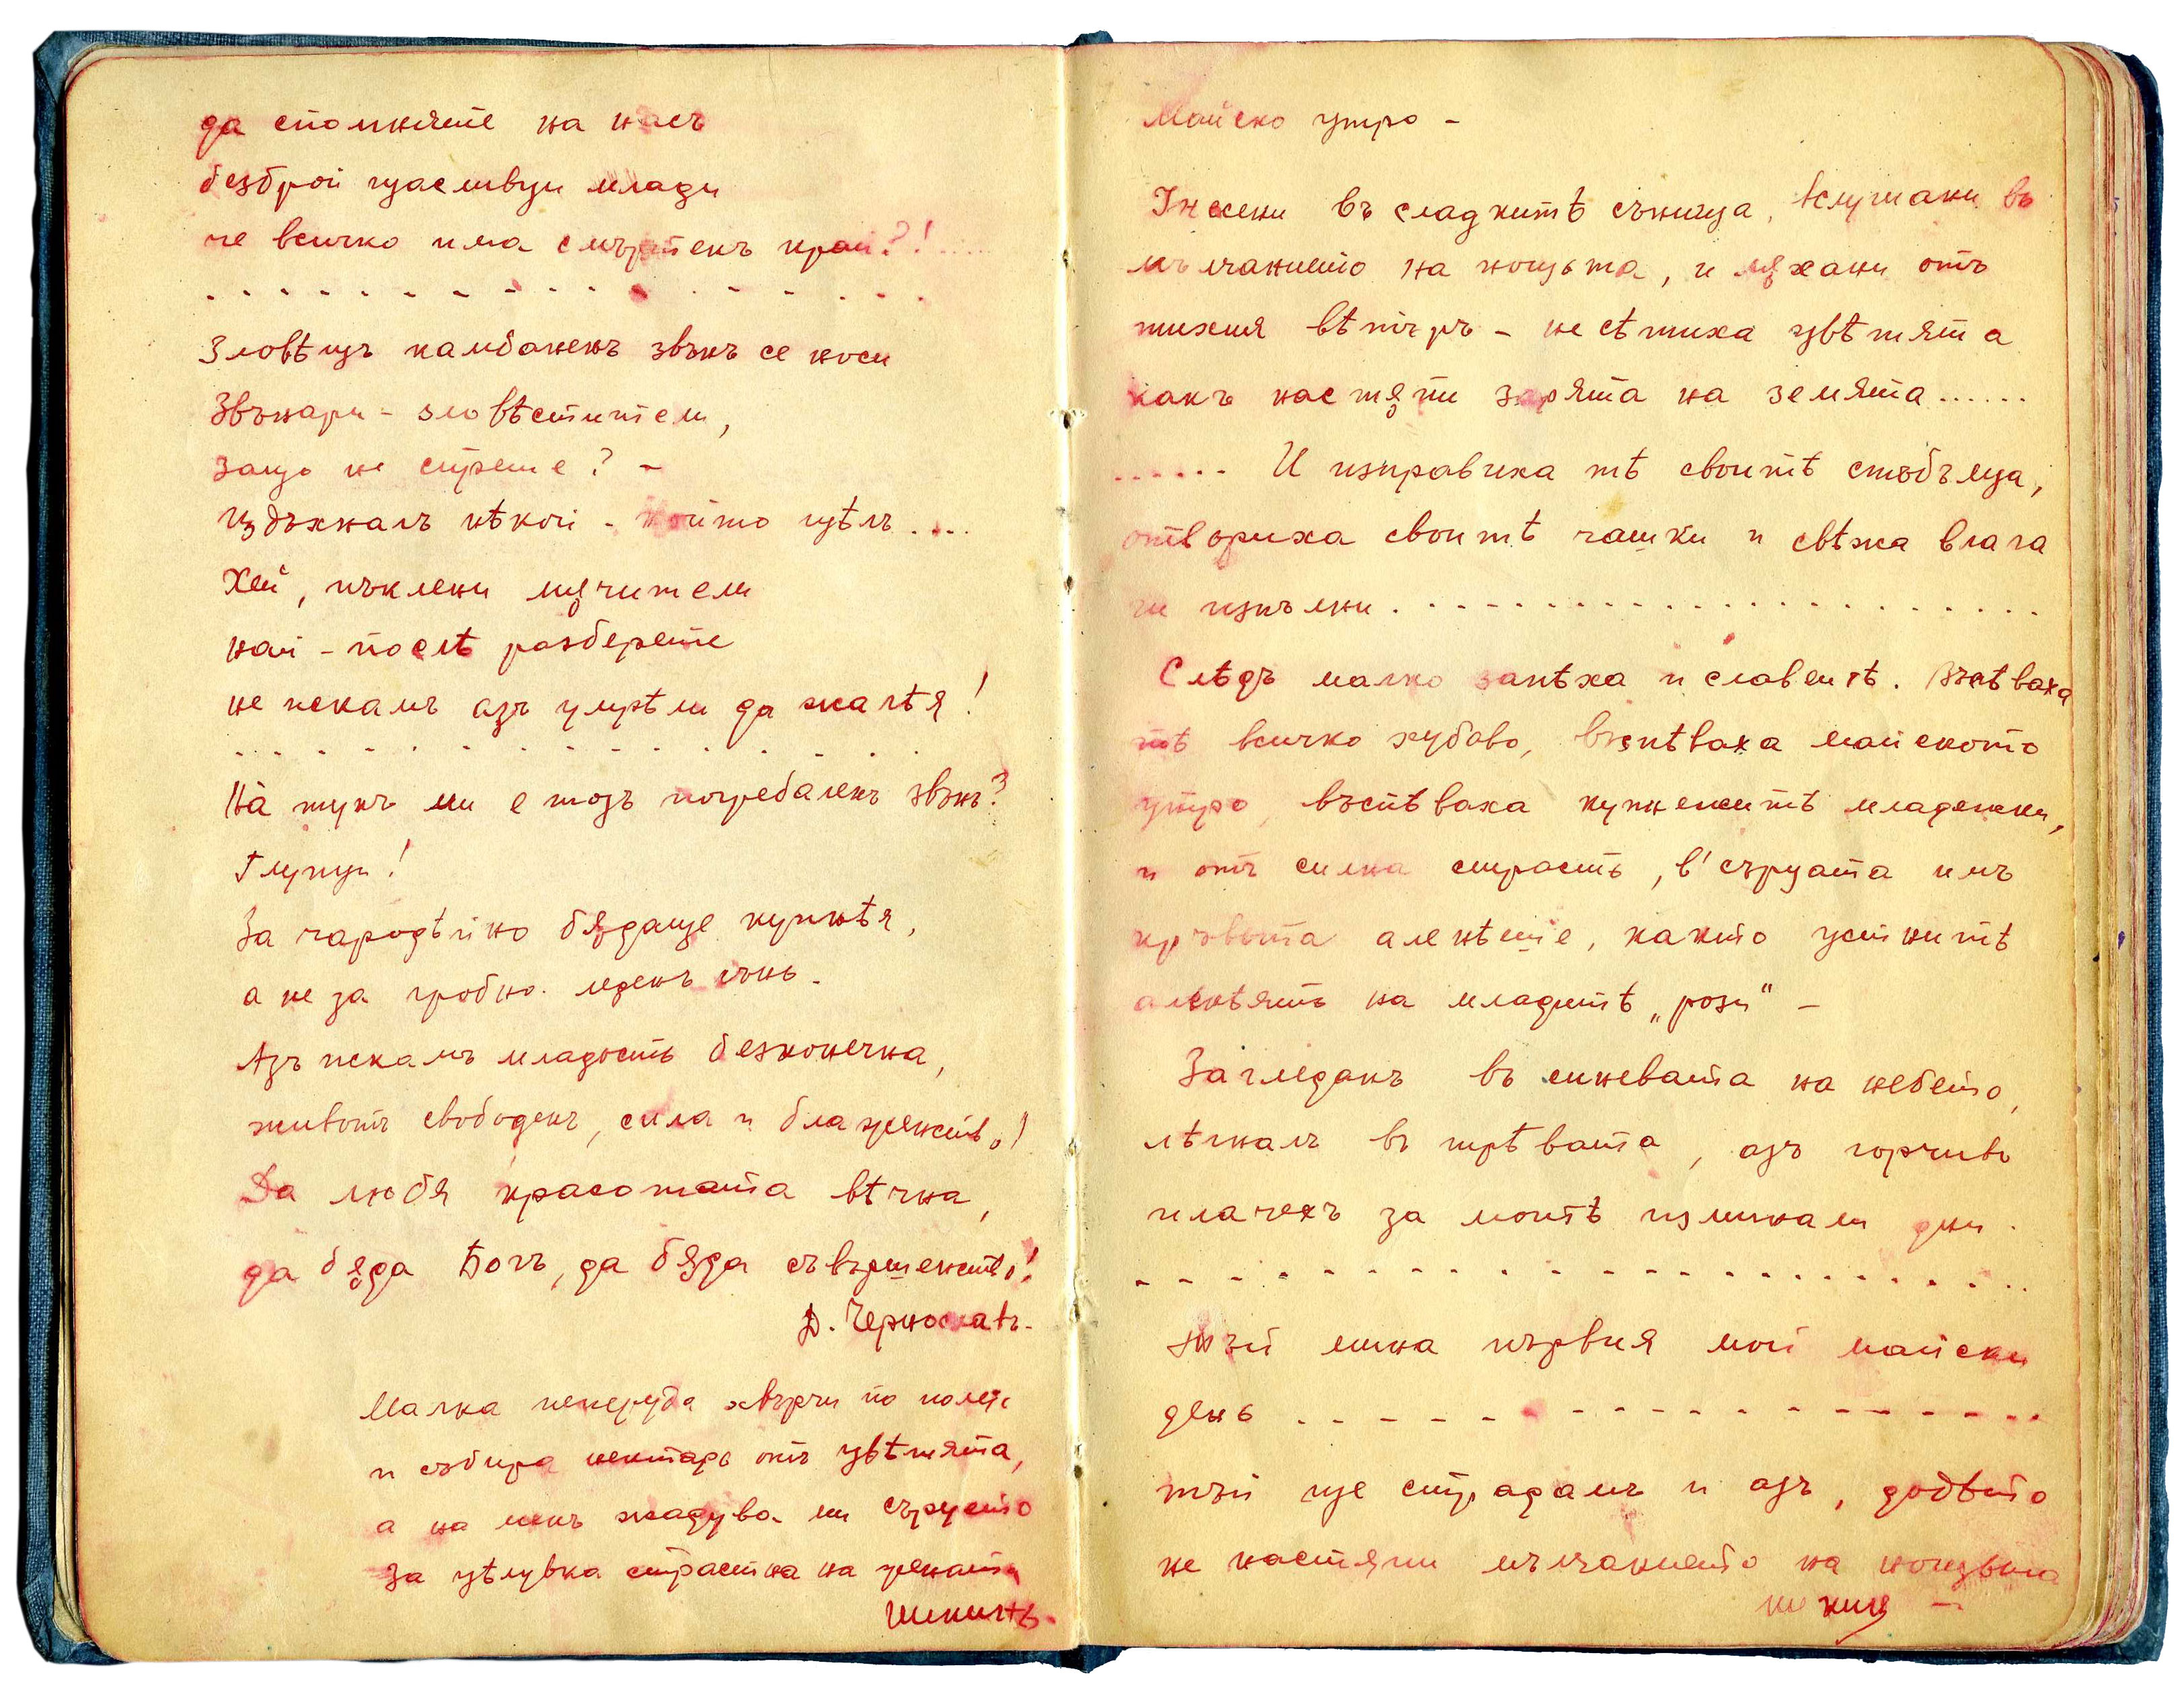 да спомняте на насъ
безброй щасливци млади
че всичко има смъртенъ край?!
- - - - - - - - - - - - - - - -
Зловѣщъ камбаненъ звънъ се носи
Звънари - зловѣстители,
защо не спреше? -
Издъхналъ нѣкой - който щѣлъ....
Хей, пъклени мѫчители
най - послѣ разберете
не искамъ азъ умрѣли да жалѣя!
- - - - - - - - - - - - - - - -
На тукъ ли е тозъ погребаленъ звънъ?
Глупци!
За чародѣйно бѫдаще купнѣя,
а не за гробно леденъ сънь.
Азъ искамъ младость безконечна,
животъ свободенъ, сила и блаженство!
Да любя красотата вѣчна,
да бѫда Богъ, да бѫда съвършенство!
Д. Чернославъ.
Малка пеперуда хвърчи по полето
и събира нектаръ отъ цвѣтята,
а на менъ жадува ли сърцето
за цѣлувка страстна на жената
Майско утро -
Унесени въ сладкитѣ сънища, вслушани въ
мълчанието на нощьта, и лъхани отъ
тихия вѣтъръ - не сѣтиха цвѣтята
какъ настѫпи зарята на земята......
...... И изправиха тѣ своитѣ стъбълца,
отвориха своитѣ чашки и свѣжа влага
ги изпълни. - - - - - - - - - - - - - - - -
Слѣдъ малко запѣха и славеитѣ. Възпѣваха
тѣ всичко хубаво, възпѣваха майското
утро, въспѣваха купнежитѣ младежки,
и отъ силна страсть, в' сърцата имъ
кръвьта аленѣеше, както устнитѣ
аленѣятъ на младитѣ „рози" -
Загледанъ въ синевата на небето,
лѣгналъ въ трѣвата, азъ горчиво
плачехъ за моитѣ изминали дни.
- - - - - - - - - - - - - - - -
тъй мина първия мой майски
день - - - - - - - - - - - - - - - -
тъй ще страдамъ и азъ, додѣто
не настѫпи мълчанието на нощьта